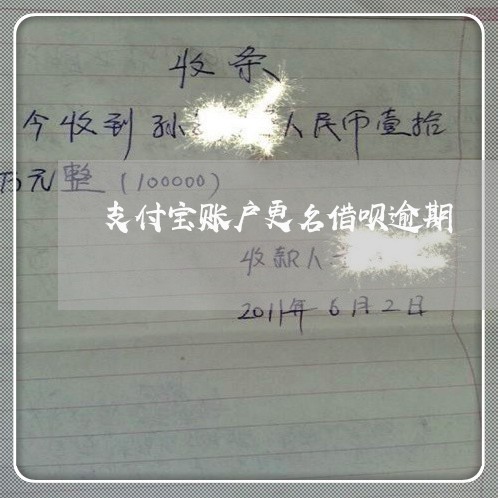 收条
今收到孙 人民币壹拾
万元整(100000)
支付宝账户更名借呗逾期
收款人
2011年6月2日